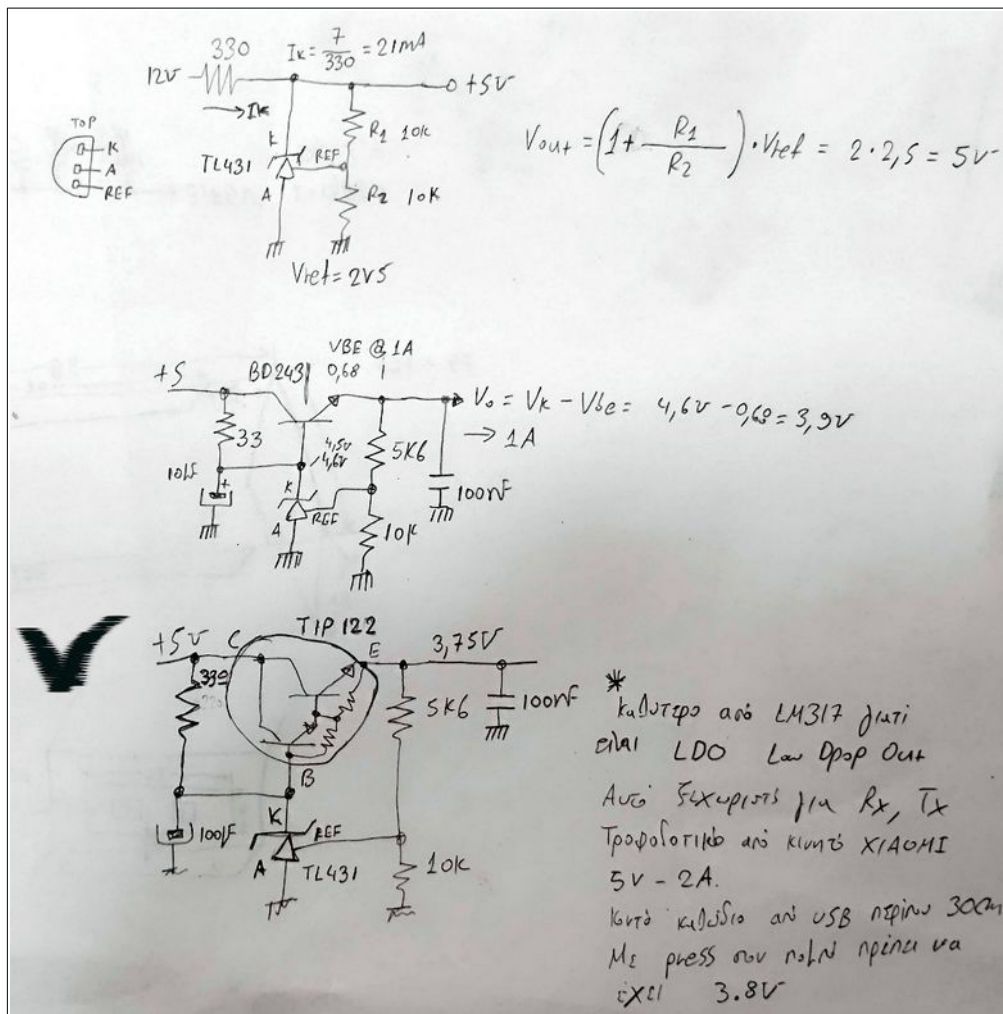 330
Iκ = 7/330 = 21mA
12V
+5V
→Iκ
TOP
K
A
REF
K
R1 10K
TL431
REF
A
R2 10K
Vout = (1 + R1/R2) · Vref = 2 · 2,5 = 5V
Vref = 2V5
VBE @ 1A
+5
BD243
0,68
Vo = VK - Vbe = 4,6V - 0,68 = 3,9V
→ 1A
33
4,5V
4,6V
5K6
K
100nF
A
REF
10K
TIP 122
+5V
C
E
3,75V
330
5K6
100nF
B
K
REF
A
TL431
10K
*
καλύτερο από LM317 γιατί
είναι LDO Low Dpop Out
Αυτό ξεχωριστά για Rx, Tx
Τροφοδοτικό από κινητό XIAOMI
5V - 2A.
Κοντό καλώδιο από USB περίπου 30cm
Με press στον πρέπει να
έχει 3.8V